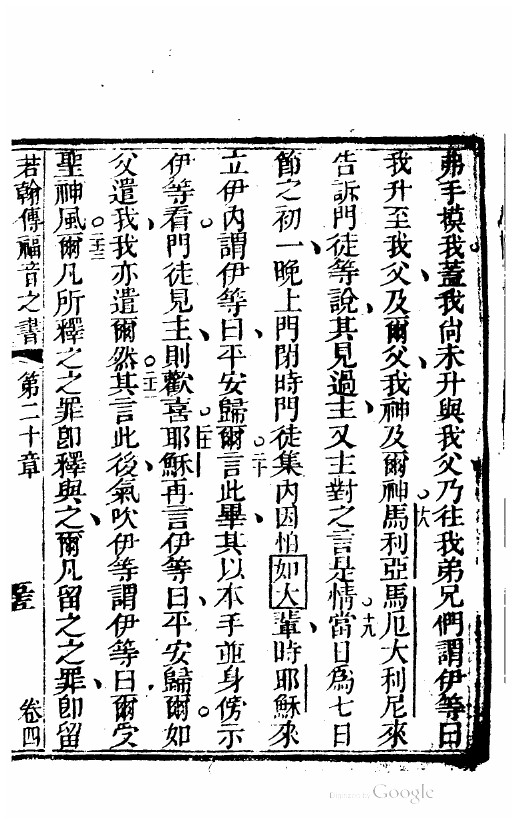 弗手摸我蓋我尙未升與我父乃往我弟兄們謂伊等曰
我升至我父及爾父我神及爾神十八馬利亞馬厄大利尼來
告訴門徒等說其見過主又主對之言是情十九當日爲七日
節之初一晚上門閉時門徒集二十內因怕如大輩時耶穌來
立伊內謂伊等曰平安歸爾言此畢其以本手並身傍示
伊等看門徒見主則歡喜耶穌再言伊等曰平安歸爾如
父遣我我亦遣爾然其言此後氣吹伊等謂伊等曰爾受
聖神風爾凡所釋之之罪卽釋與之爾凡留之之罪卽留
若翰傳福音之書 第二十章 卷四
Digitized by Google